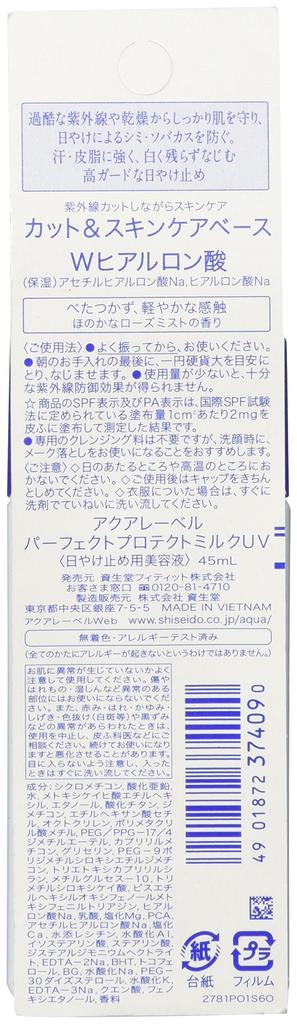 過酷な紫外線や乾燥からしっかり肌を守り、
日やけによるシミ・ソバカスを防ぐ。
汗・皮脂に強く、白く残らずなじむ
高ガードな日やけ止め
紫外線カットしながらスキンケア
カット＆スキンケアベース
Wヒアルロン酸
（保湿）アセチルヒアルロン酸Na,ヒアルロン酸Na
べたつかず、軽やかな感触
ほのかなローズミストの香り
〈ご使用法〉●よく振ってから、お使いください。
●朝のお手入れの最後に、一円硬貨大を目安に
とり、なじませます。●使用量が少ないと、十分
な紫外線防御効果が得られません。
☆商品のSPF表示及びPA表示は、国際SPF試験
法に定められている塗布量1cm²あたり2mgを
皮ふに塗布して測定した結果です。
●専用のクレンジング料は不要ですが、洗顔時に、
メーク落としをお使いになることをおすすめします。
〈ご注意〉◇日のあたるところや高温のところにお
かないでください。◇ご使用後はキャップをきちん
としめてください。◇衣服についた場合は、すぐに
洗剤でていねいに洗い流してください。
アクアレーベル
パーフェクトプロテクトミルクUV
〈日やけ止め用美容液〉 45mL
発売元 資生堂フィティット株式会社
お客さま窓口 0120-81-4710
製造販売元 株式会社 資生堂
東京都中央区銀座7-5-5 MADE IN VIETNAM
アクアレーベルWeb www.shiseido.co.jp/aqua/
無着色・アレルギーテスト済み
（全てのかたにアレルギーが起きないというわけではありません。）
お肌に異常が生じていないかよく
注意して使用してください。傷や
はれもの・湿しんなど異常のある
部位にはお使いにならないでくだ
さい。また、赤み・はれ・かゆみ・
しげき・色抜け（白斑等）や黒ずみ
などの異常があらわれたときは、
使用を中止し、皮ふ科医などにご
相談ください。続けてお使いになり
ますと悪化させることがあります。
目に入らないよう注意し、入った
ときはすぐに洗い流してください。
成分：シクロメチコン,酸化亜鉛,
水,メトキシケイヒ酸エチルヘキ
シル,エタノール,酸化チタン,ジ
メチコン,エチルヘキサン酸セチ
ル,オクトクリレン,ポリメタクリ
ル酸メチル,PEG／PPG-17／4
ジメチルエーテル,カプリリルメ
チコン,グリセリン,PEG-9ポリ
ジメチルシロキシエチルジメチ
コン,トリエトキシカプリリルシ
ラン,メチルグルセス-10,トリ
メチルシロキシケイ酸,ビスエチ
ルヘキシルオキシフェノールメト
キシフェニルトリアジン,ヒアル
ロン酸Na,乳酸,塩化Mg,PCA,
アセチルヒアルロン酸Na,塩化
Ca,水添レシチン,水酸化Al,
イソステアリン酸,ステアリン酸,
ジステアルジモニウムヘクトライ
ト,EDTA-2Na,BHT,トコフェ
ロール,BG,水酸化Na,PEG-
30ダイズステロール,水酸化K,
EDTA-3Na,クエン酸,フェノ
キシエタノール,香料
4 901872 374090
紙
台紙
プラ
フィルム
2781P01S60